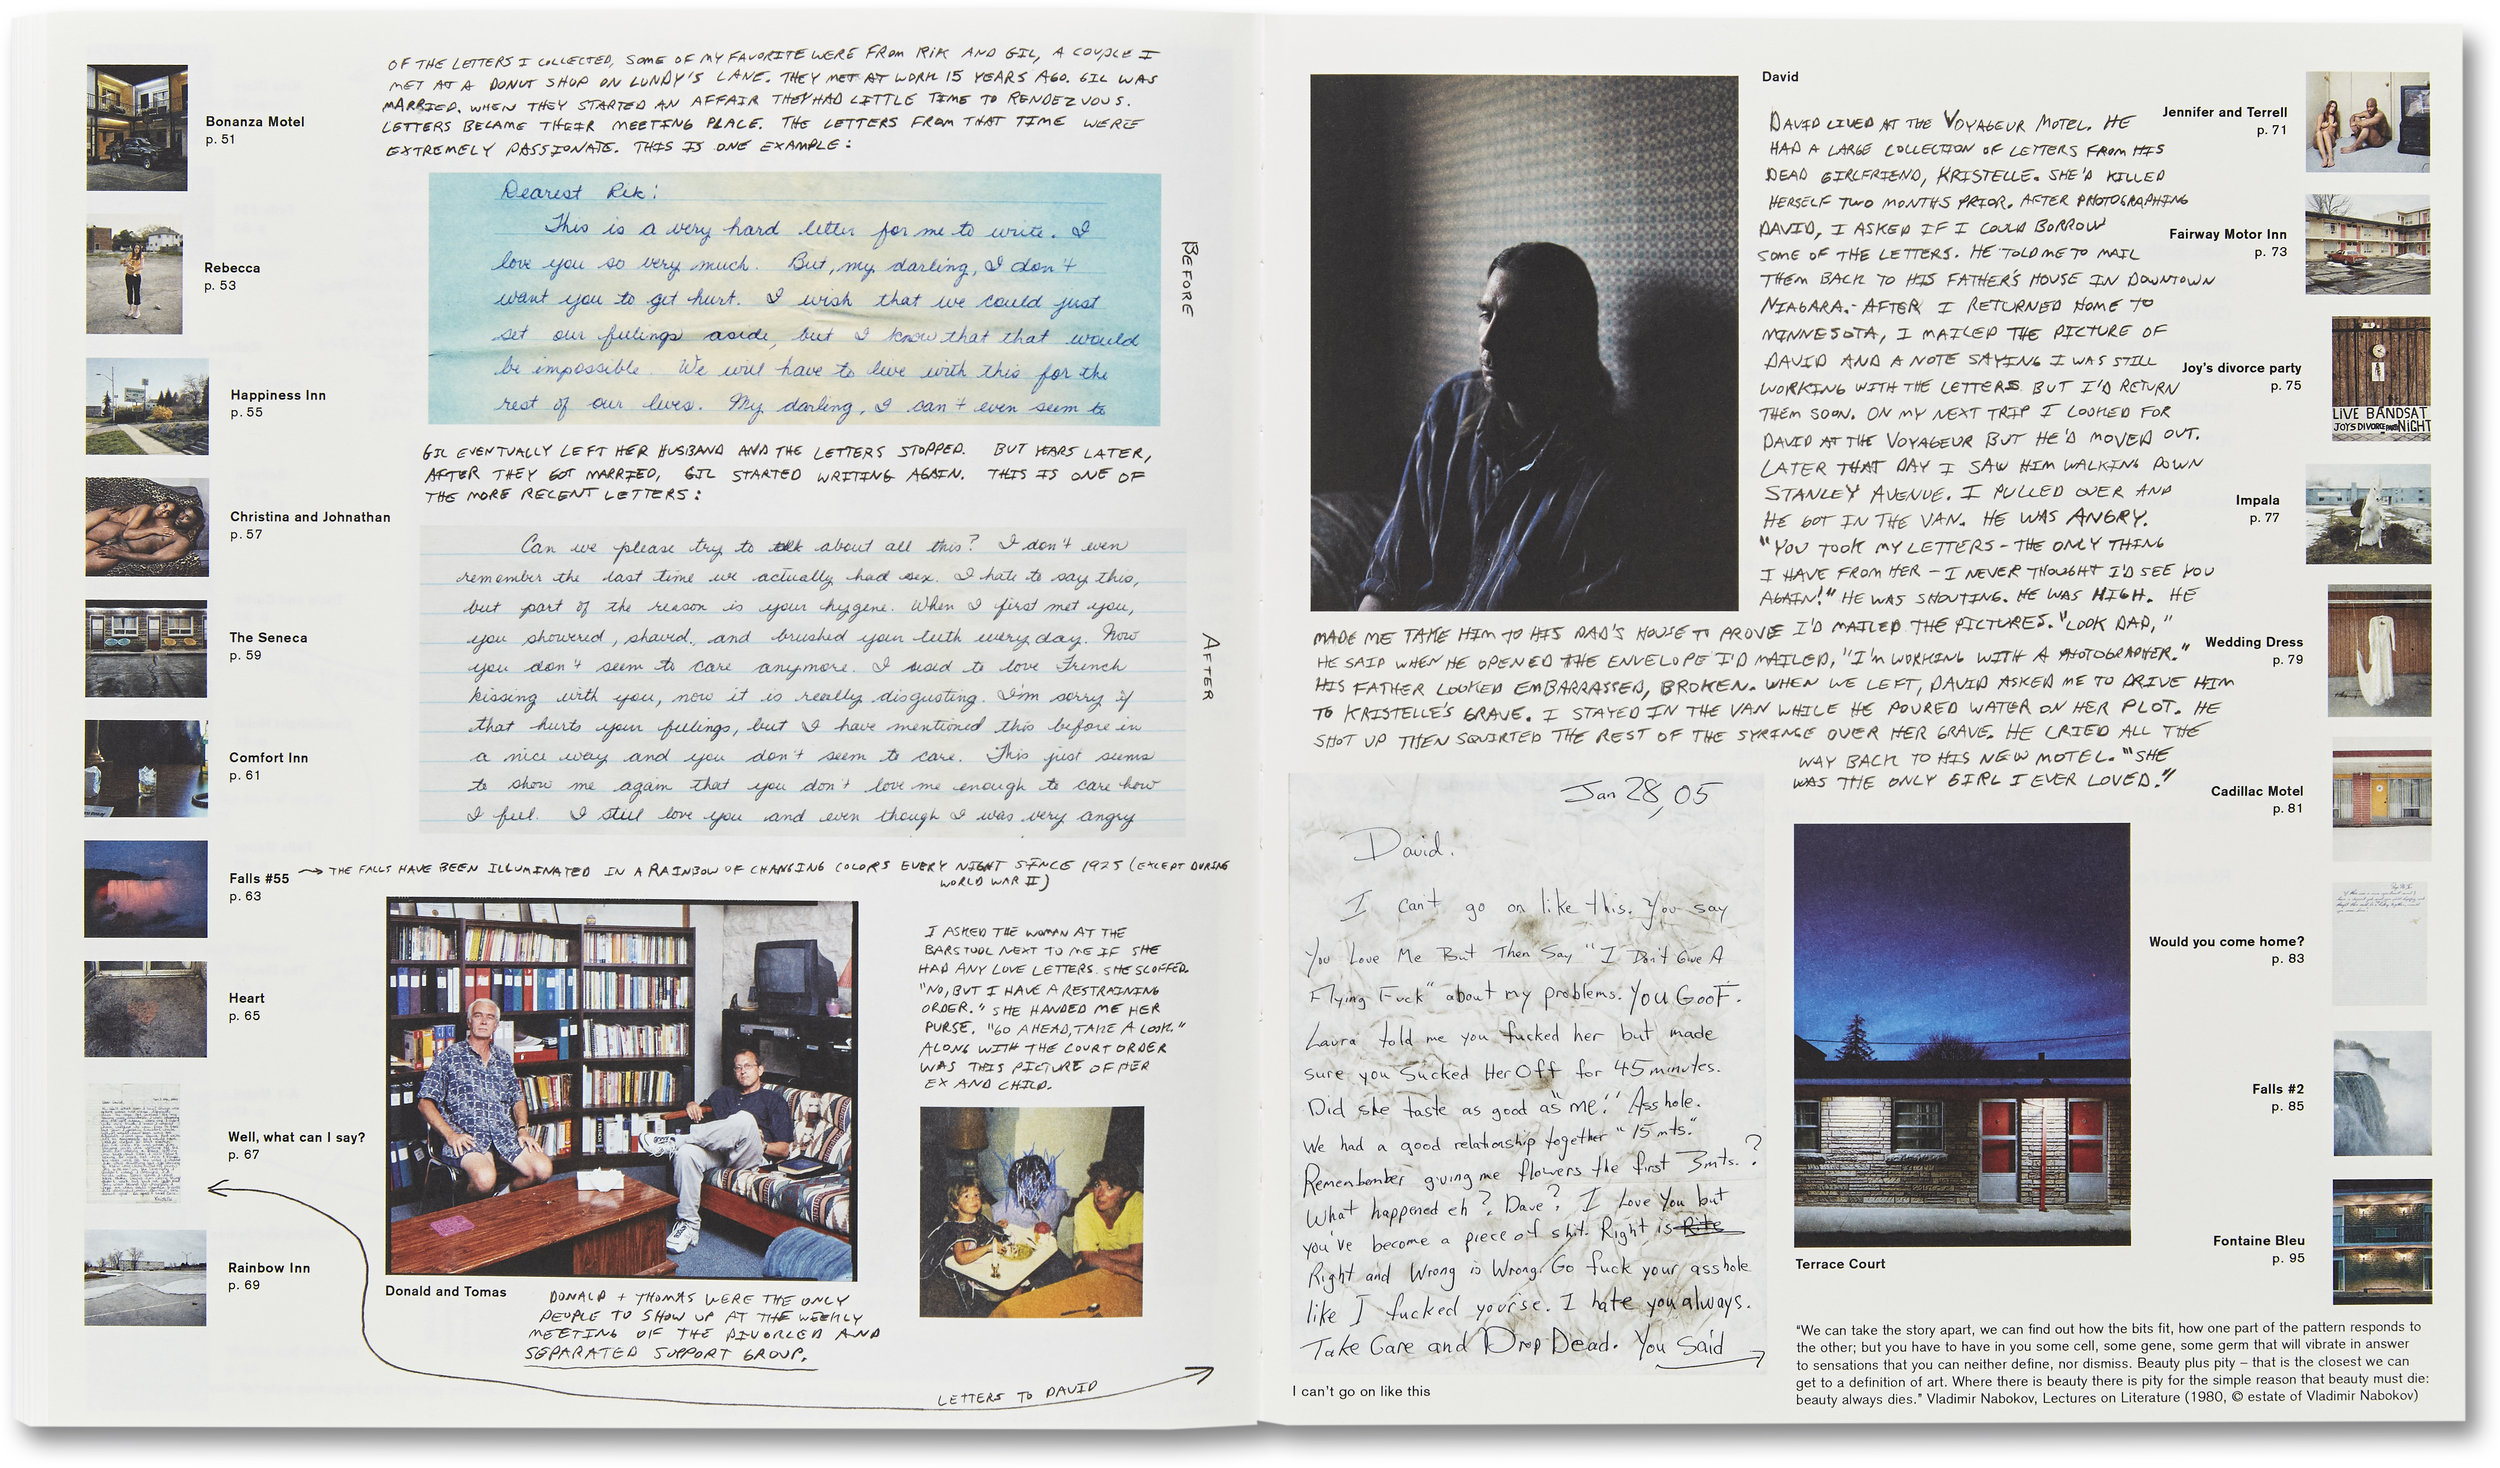 Bonanza Motel
p. 51
Rebecca
p. 53
Happiness Inn
p. 55
Christina and Johnathan
p. 57
The Seneca
p. 59
Comfort Inn
p. 61
Falls #55
p. 63
Heart
p. 65
Well, what can I say?
p. 67
Rainbow Inn
p. 69
OF THE LETTERS I COLLECTED, SOME OF MY FAVORITE WERE FROM RIK AND GIL, A COUPLE I
MET AT A DONUT SHOP ON LUNDY'S LANE. THEY MET AT WORK 15 YEARS AGO. GIL WAS
MARRIED. WHEN THEY STARTED AN AFFAIR THEY HAD LITTLE TIME TO RENDEZVOUS.
LETTERS BECAME THEIR MEETING PLACE. THE LETTERS FROM THAT TIME WERE
EXTREMELY PASSIONATE. THIS IS ONE EXAMPLE:
Dearest Rik:
This is a very hard letter for me to write. I
love you so very much. But, my darling, I don't
want you to get hurt. I wish that we could just
set our feelings aside, but I know that that would
be impossible. We will have to live with this for the
rest of our lives. My darling, I can't even seem to
BEFORE
GIL EVENTUALLY LEFT HER HUSBAND AND THE LETTERS STOPPED. BUT YEARS LATER,
AFTER THEY GOT MARRIED, GIL STARTED WRITING AGAIN. THIS IS ONE OF
THE MORE RECENT LETTERS:
Can we please try to talk about all this? I don't even
remember the last time we actually had sex. I hate to say this,
but part of the reason is your hygene. When I first met you,
you showered, shaved, and brushed your teeth every day. Now
you don't seem to care anymore. I used to love French
kissing with you, now it is really disgusting. I'm sorry if
that hurts your feelings, but I have mentioned this before in
a nice way and you don't seem to care. This just seems
to show me again that you don't love me enough to care how
I feel. I still love you and even though I was very angry
AFTER
THE FALLS HAVE BEEN ILLUMINATED IN A RAINBOW OF CHANGING COLORS EVERY NIGHT SINCE 1925 (EXCEPT DURING
WORLD WAR II)
I ASKED THE WOMAN AT THE
BARSTOOL NEXT TO ME IF SHE
HAD ANY LOVE LETTERS. SHE SCOFFED.
"NO, BUT I HAVE A RESTRAINING
ORDER." SHE HANDED ME HER
PURSE. "GO AHEAD, TAKE A LOOK."
ALONG WITH THE COURT ORDER
WAS THIS PICTURE OF HER
EX AND CHILD.
Donald and Tomas
DONALD + THOMAS WERE THE ONLY
PEOPLE TO SHOW UP AT THE WEEKLY
MEETING OF THE DIVORCED AND
SEPARATED SUPPORT GROUP.
LETTERS TO DAVID
David
DAVID LIVED AT THE VOYAGEUR MOTEL. HE
HAD A LARGE COLLECTION OF LETTERS FROM HIS
DEAD GIRLFRIEND, KRISTELLE. SHE'D KILLED
HERSELF TWO MONTHS PRIOR. AFTER PHOTOGRAPHING
DAVID, I ASKED IF I COULD BORROW
SOME OF THE LETTERS. HE TOLD ME TO MAIL
THEM BACK TO HIS FATHER'S HOUSE IN DOWNTOWN
NIAGARA. AFTER I RETURNED HOME TO
MINNESOTA, I MAILED THE PICTURE OF
DAVID AND A NOTE SAYING I WAS STILL
WORKING WITH THE LETTERS BUT I'D RETURN
THEM SOON. ON MY NEXT TRIP I LOOKED FOR
DAVID AT THE VOYAGEUR BUT HE'D MOVED OUT.
LATER THAT DAY I SAW HIM WALKING DOWN
STANLEY AVENUE. I PULLED OVER AND
HE GOT IN THE VAN. HE WAS ANGRY.
"YOU TOOK MY LETTERS - THE ONLY THING
I HAVE FROM HER - I NEVER THOUGHT I'D SEE YOU
AGAIN!" HE WAS SHOUTING. HE WAS HIGH. HE
MADE ME TAKE HIM TO HIS DAD'S HOUSE TO PROVE I'D MAILED THE PICTURES. "LOOK DAD,"
HE SAID WHEN HE OPENED THE ENVELOPE I'D MAILED, "I'M WORKING WITH A PHOTOGRAPHER."
HIS FATHER LOOKED EMBARRASSED, BROKEN. WHEN WE LEFT, DAVID ASKED ME TO DRIVE HIM
TO KRISTELLE'S GRAVE. I STAYED IN THE VAN WHILE HE POURED WATER ON HER PLOT. HE
SHOT UP THEN SQUIRTED THE REST OF THE SYRINGE OVER HER GRAVE. HE CRIED ALL THE
WAY BACK TO HIS NEW MOTEL. "SHE
WAS THE ONLY GIRL I EVER LOVED."
Jan 28, 05
David.
I can't go on like this. You say
You Love Me But Then Say "I Don't Give A
Flying Fuck" about my problems. You GooF.
Laura told me you fucked her but made
sure you Sucked Her Off for 45 minutes.
Did she taste as good as "me." Asshole.
We had a good relationship together "15 mts."
Remembember giving me flowers the first 3mts.?
What happened eh? Dave? I Love You but
you've become a piece of shit. Right is Rite
Right and Wrong is Wrong. Go fuck your asshole
like I fucked yourse. I hate you always.
Take Care and Drop Dead. You Said
I can't go on like this
Terrace Court
"We can take the story apart, we can find out how the bits fit, how one part of the pattern responds to
the other; but you have to have in you some cell, some gene, some germ that will vibrate in answer
to sensations that you can neither define, nor dismiss. Beauty plus pity – that is the closest we can
get to a definition of art. Where there is beauty there is pity for the simple reason that beauty must die:
beauty always dies." Vladimir Nabokov, Lectures on Literature (1980, © estate of Vladimir Nabokov)
Jennifer and Terrell
p. 71
Fairway Motor Inn
p. 73
Joy's divorce party
p. 75
LIVE BANDSAT
JOYS DIVORCE NIGHT
Impala
p. 77
Wedding Dress
p. 79
Cadillac Motel
p. 81
Would you come home?
p. 83
Falls #2
p. 85
Fontaine Bleu
p. 95